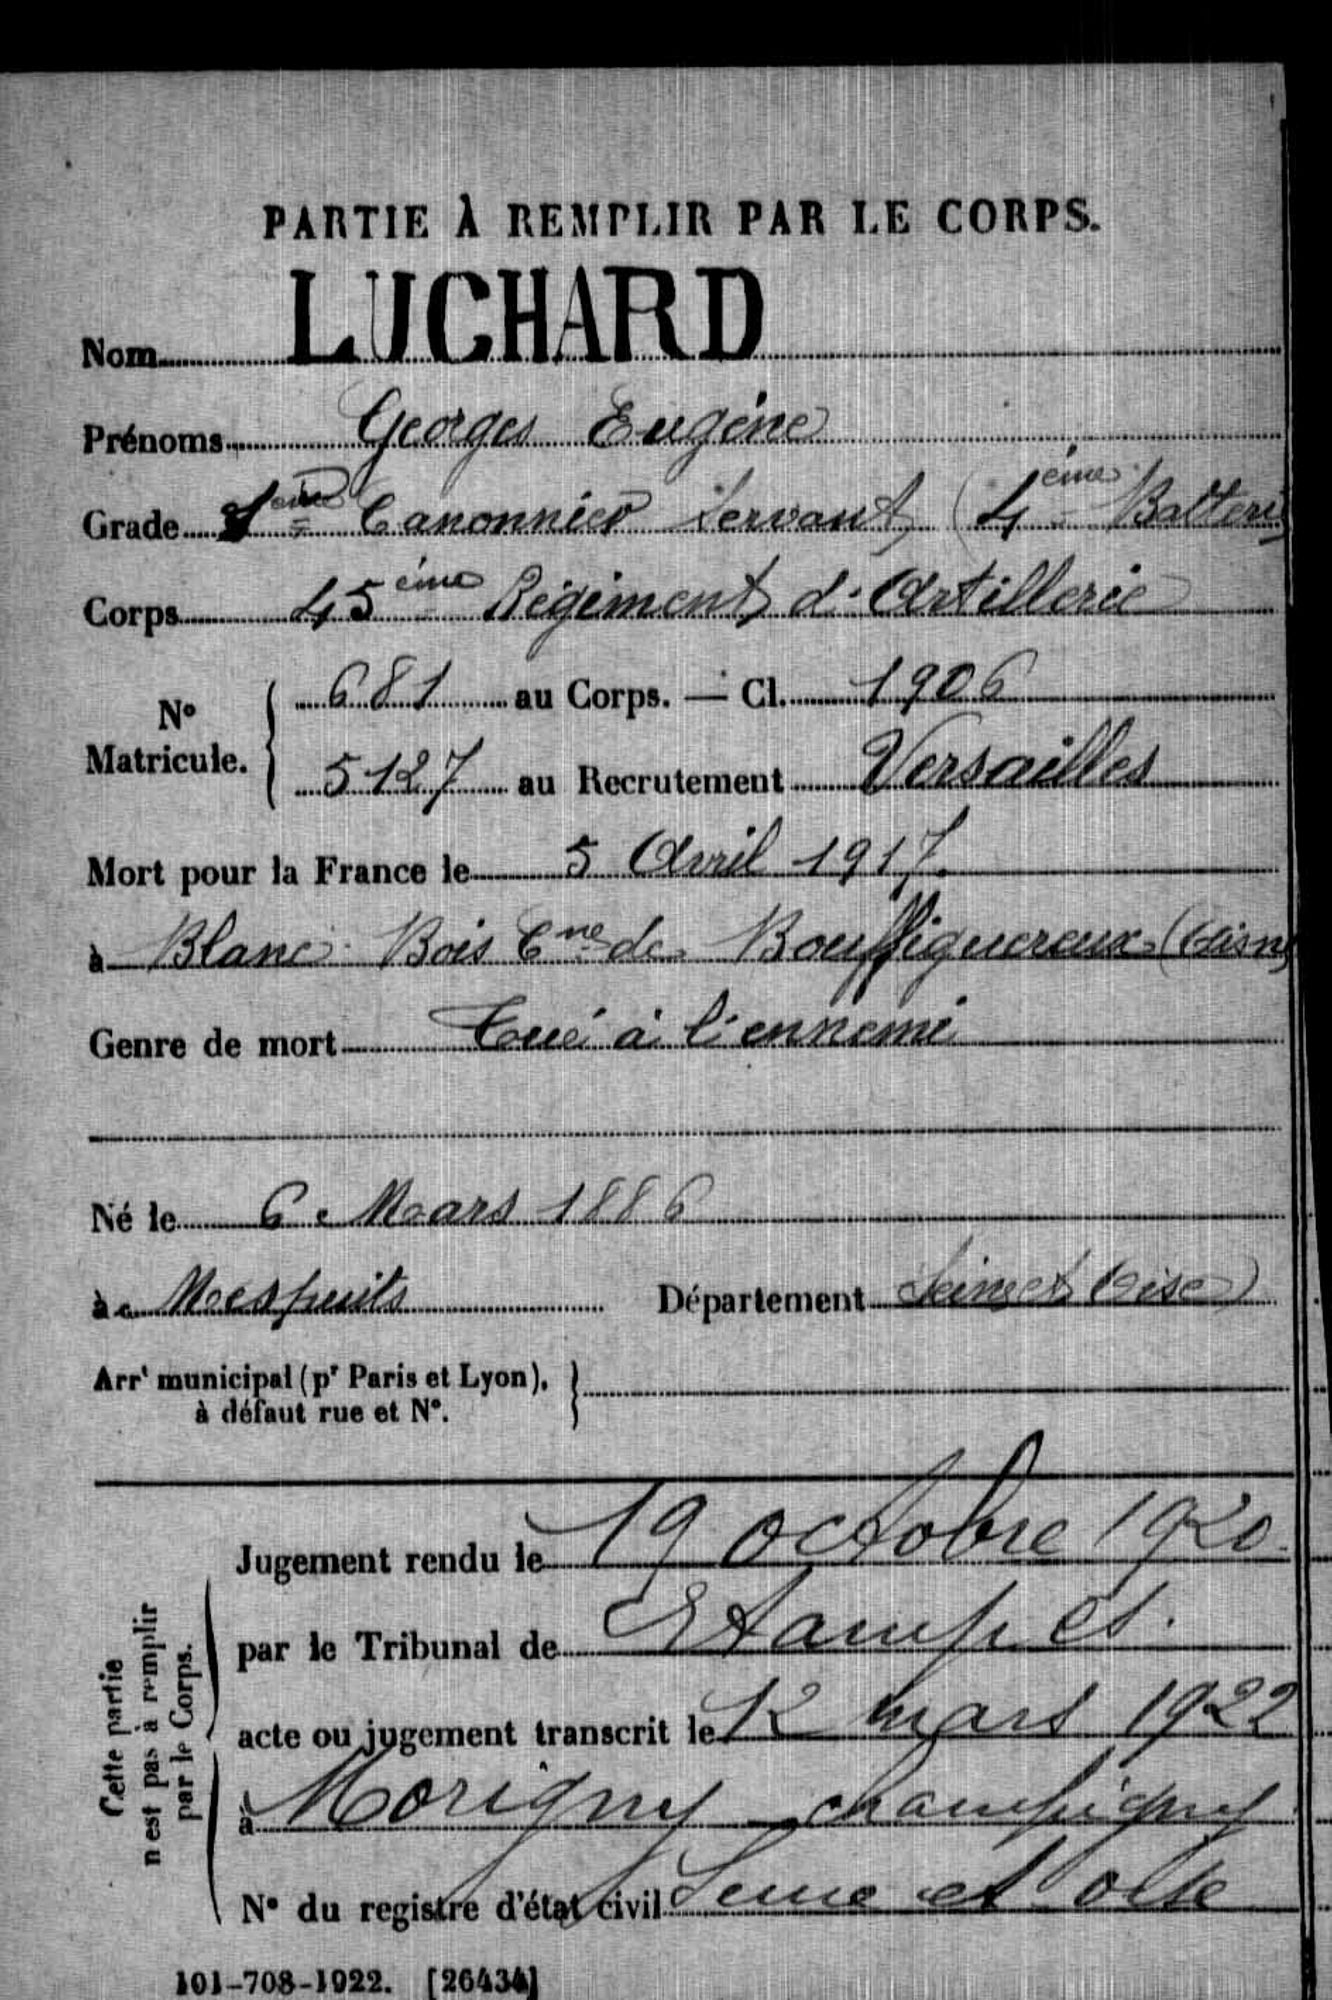 PARTIE À REMPLIR PAR LE CORPS.
Nom LUCHARD
Prénoms Georges Eugène
Grade Canonnier Servant (4ème Batterie
Corps 45ème Régiment d'Artillerie
N° Matricule. 681 au Corps. — Cl. 1906
5127 au Recrutement Versailles
Mort pour la France le 5 Avril 1917.
à Blanc Bois Cne de Bouffiguereux (Aisne
Genre de mort Tué à l'ennemi
Né le 6 Mars 1886
à Mespuits Département Seine et Oise
Arrt municipal (pr Paris et Lyon), à défaut rue et N°.
Cette partie n'est pas à remplir par le Corps.
Jugement rendu le 19 octobre 1920.
par le Tribunal de Etampes.
acte ou jugement transcrit le 12 mars 1922
à Morigny-champigny
N° du registre d'état civil Seine et Oise
101-708-1922. [26434]